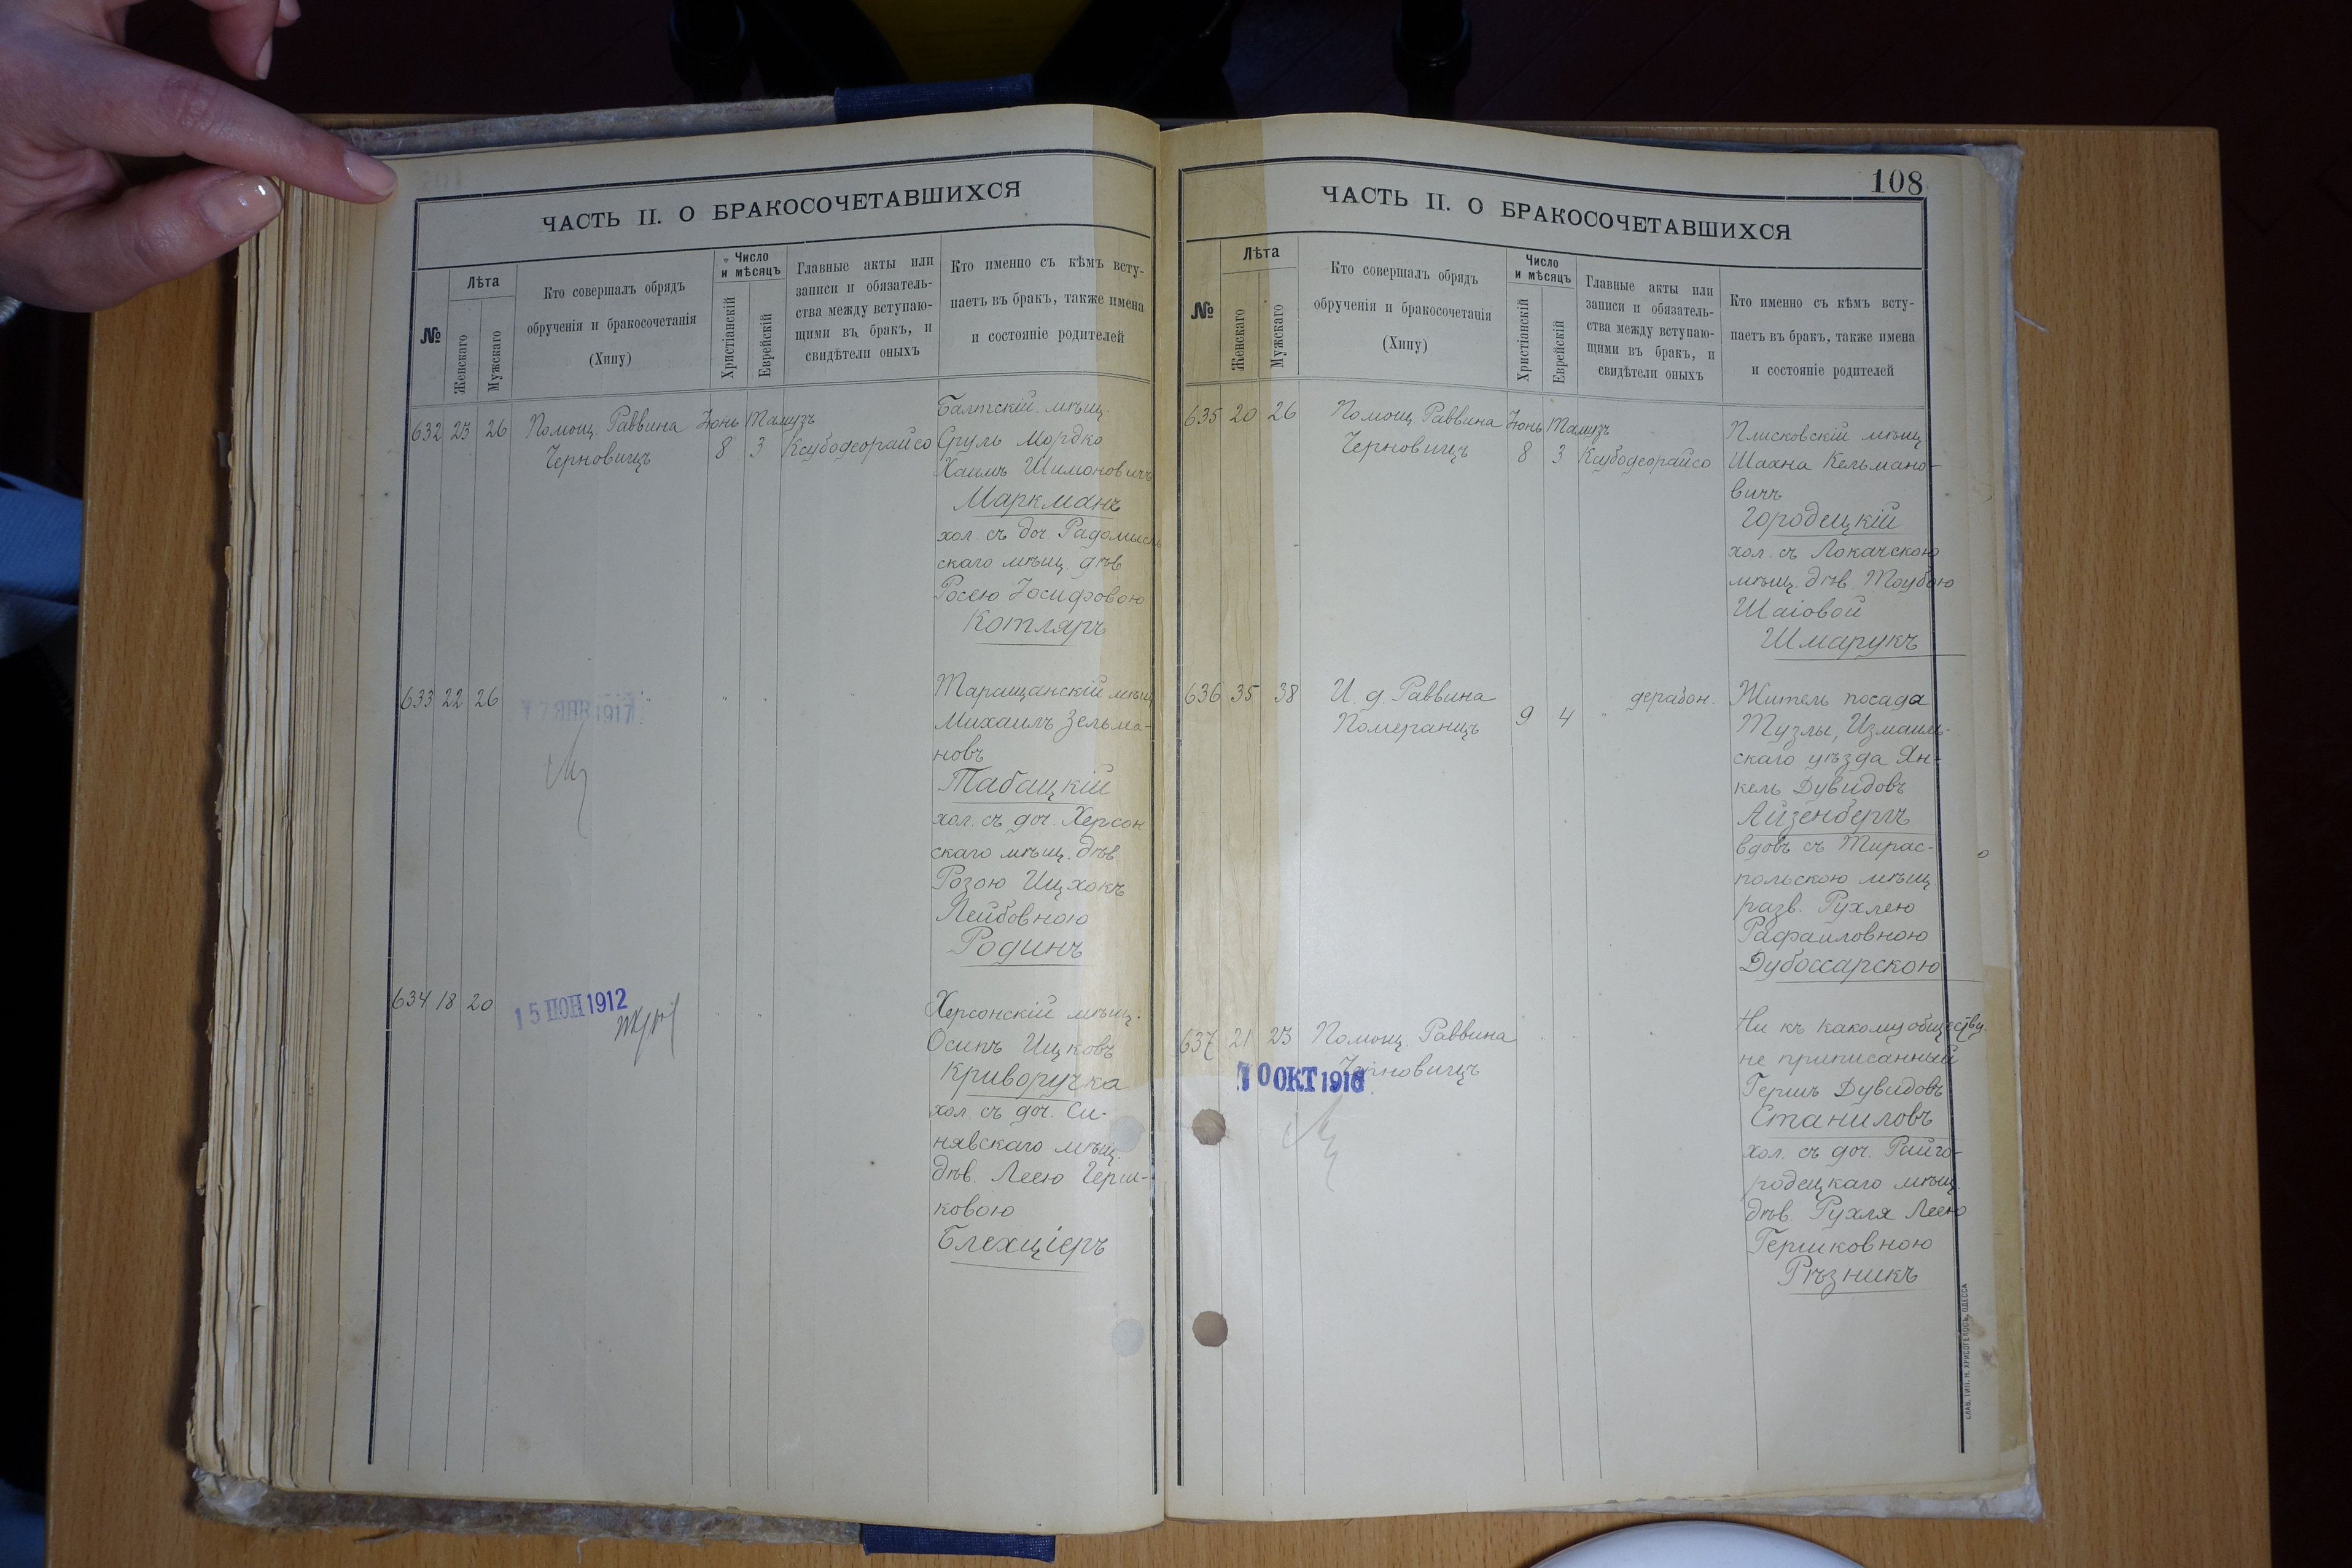 ЧАСТЬ II. О БРАКОСОЧЕТАВШИХСЯ
№
Лѣта
Женскаго
Мужскаго
Кто совершалъ обрядъ
обрученія и бракосочетанія
(Хипу)
Число
и мѣсяцъ
Христіанскій
Еврейскій
Главные акты или
записи и обязатель-
ства между вступаю-
щими въ бракъ, и
свидѣтели оныхъ
Кто именно съ кѣмъ всту-
паетъ въ бракъ, также имена
и состояніе родителей
632 23 26 Помощ. Раввина Іюнь Тамузъ
Черновицъ 8 3 Ксубодеорайсо
Балтскій мѣщ.
Сруль Мордко
Хаимъ Шимоновичъ
Маркманъ
хол. съ доч. Радомысль
скаго мѣщ. дѣв
Росею Іосифовою
Котляръ
633 22 26
1917
Таращанскій мѣщ
Михаилъ Зельма-
новъ
Табацкій
хол. съ доч. Херсон
скаго мѣщ. дѣв.
Розою Ицхокъ
Лейбовною
Родинъ
634 18 20
15 ІЮН 1912
Херсонскій мѣщ.
Осипъ Ицковъ
Криворучка
хол. съ доч. Си-
нявскаго мѣщ.
дѣв. Леею Герш-
ковою
Блехціеръ
108
ЧАСТЬ II. О БРАКОСОЧЕТАВШИХСЯ
№
Лѣта
Женскаго
Мужскаго
Кто совершалъ обрядъ
обрученія и бракосочетанія
(Хипу)
Число
и мѣсяцъ
Христіанскій
Еврейскій
Главные акты или
записи и обязатель-
ства между вступаю-
щими въ бракъ, и
свидѣтели оныхъ
Кто именно съ кѣмъ всту-
паетъ въ бракъ, также имена
и состояніе родителей
635 20 26 Помощ. Раввина Іюнь Тамузъ
Черновицъ 8 3 Ксубодеорайсо
Плисковскій мѣщ
Шахна Кельмано-
вичъ
Городецкій
хол. съ Локачскою
мѣщ. дѣв. Таубою
Шаіовой
Шмарукъ
636 35 38 И. д. Раввина
Померанцъ 9 4 " дерабон.
Житель посада
Тузлы, Измаиль-
скаго уѣзда Ян-
кель Дувидовъ
Айзенбергъ
вдовъ съ Тирас-
польскою мѣщ
разв. Рухлею
Рафаиловною
Дубоссарскою
637 21 23 Помощ. Раввина
Черновицъ
10 ОКТ 1916
Ни къ какому обществу
не приписанный
Гершъ Дувидовъ
Станиловъ
хол. съ доч. Райго-
родецкаго мѣщ.
дѣв. Рухля Леею
Гершковною
Рѣзникъ
СЛАВ. ТИП. Н. ХРИСОГЕЛОСЪ, ОДЕССА